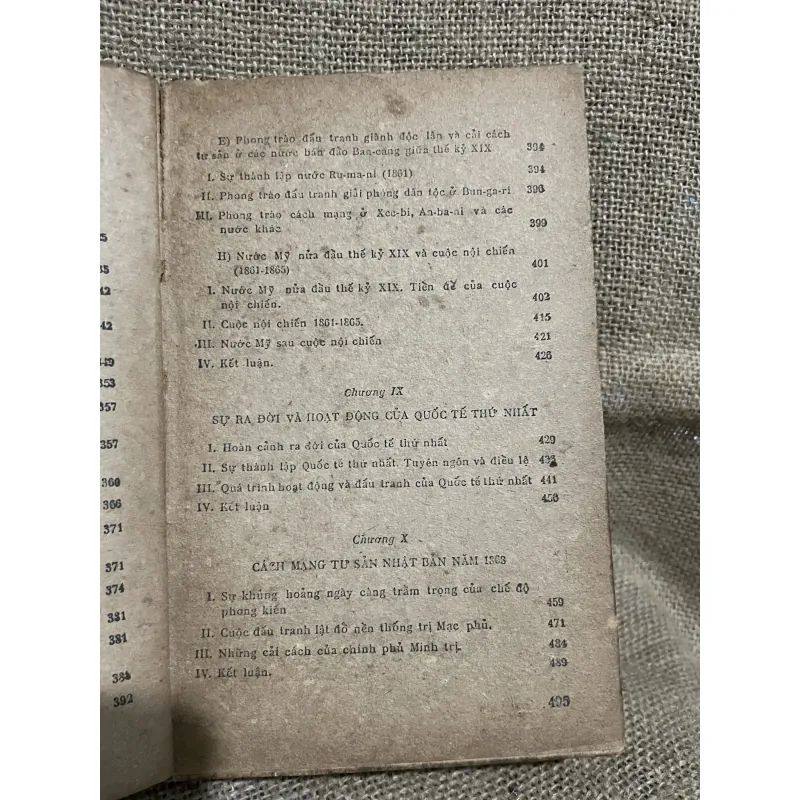 5
35
42
42
349
353
357
357
360
366
371
371
374
381
381
385
392
E) Phong trào đấu tranh giành độc lập và cải cách
tư sản ở các nước bán đảo Ban-căng giữa thế kỷ XIX 394
I. Sự thành lập nước Ru-ma-ni (1861) 394
II. Phong trào đấu tranh giải phóng dân tộc ở Bun-ga-ri 396
III. Phong trào cách mạng ở Xéc-bi, An-ba-ni và các
nước khác 399
H) Nước Mỹ nửa đầu thế kỷ XIX và cuộc nội chiến
(1861-1865) 401
I. Nước Mỹ nửa đầu thế kỷ XIX. Tiền đề của cuộc
nội chiến. 402
II. Cuộc nội chiến 1861-1865. 415
III. Nước Mỹ sau cuộc nội chiến 421
IV. Kết luận. 426
Chương IX
SỰ RA ĐỜI VÀ HOẠT ĐỘNG CỦA QUỐC TẾ THỨ NHẤT
I. Hoàn cảnh ra đời của Quốc tế thứ nhất 429
II. Sự thành lập Quốc tế thứ nhất. Tuyên ngôn và điều lệ
III. Quá trình hoạt động và đấu tranh của Quốc tế thứ nhất 441
IV. Kết luận 456
Chương X
CÁCH MẠNG TƯ SẢN NHẬT BẢN NĂM 1868
I. Sự khủng hoảng ngày càng trầm trọng của chế độ
phong kiến 459
II. Cuộc đấu tranh lật đổ nền thống trị Mạc phủ. 471
III. Những cải cách của chính phủ Minh trị. 484
IV. Kết luận. 489
495